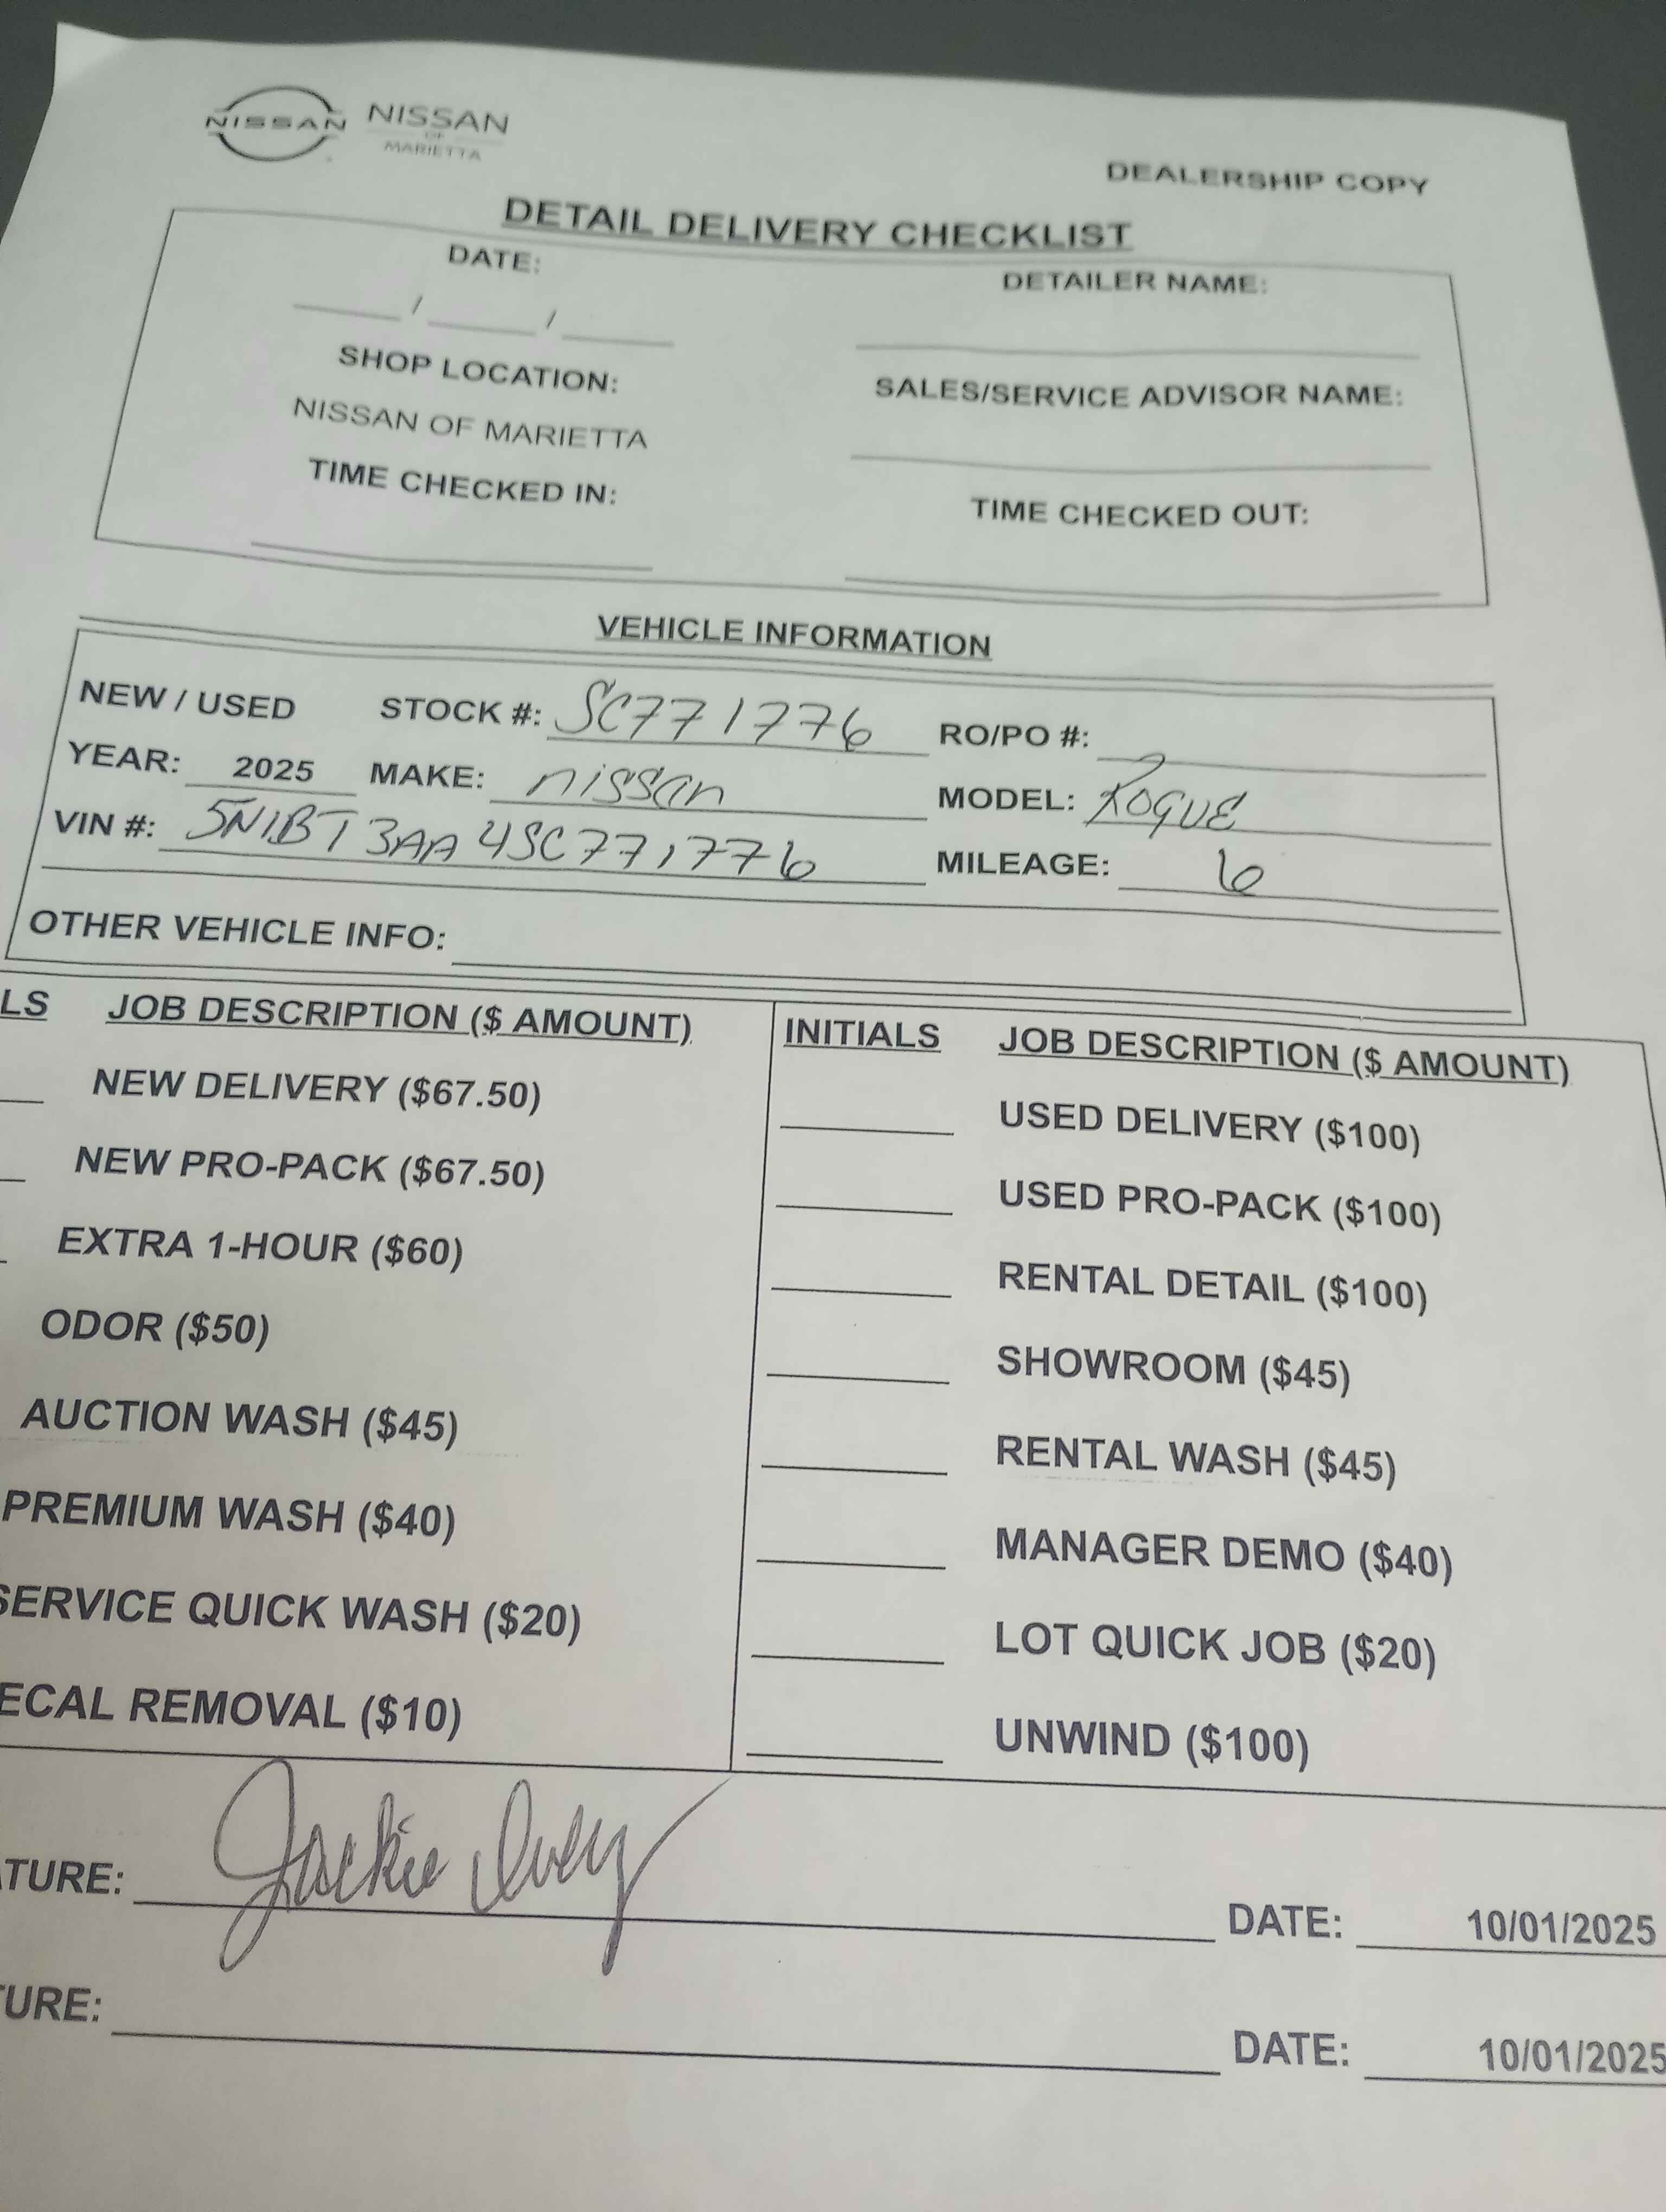 NISSAN NISSAN
OF
MARIETTA
DEALERSHIP COPY
DETAIL DELIVERY CHECKLIST
DATE: DETAILER NAME:
/ /
SHOP LOCATION: SALES/SERVICE ADVISOR NAME:
NISSAN OF MARIETTA
TIME CHECKED IN: TIME CHECKED OUT:
VEHICLE INFORMATION
NEW / USED STOCK #: SC771776 RO/PO #:
YEAR: 2025 MAKE: nissan MODEL: ROGUE
VIN #: 5N1BT3AA4SC771776 MILEAGE: 6
OTHER VEHICLE INFO:
LS JOB DESCRIPTION ($ AMOUNT) INITIALS JOB DESCRIPTION ($ AMOUNT)
NEW DELIVERY ($67.50) USED DELIVERY ($100)
NEW PRO-PACK ($67.50) USED PRO-PACK ($100)
EXTRA 1-HOUR ($60) RENTAL DETAIL ($100)
ODOR ($50) SHOWROOM ($45)
AUCTION WASH ($45) RENTAL WASH ($45)
PREMIUM WASH ($40) MANAGER DEMO ($40)
SERVICE QUICK WASH ($20) LOT QUICK JOB ($20)
ECAL REMOVAL ($10) UNWIND ($100)
ATURE: Jackie Ivey DATE: 10/01/2025
TURE: DATE: 10/01/2025